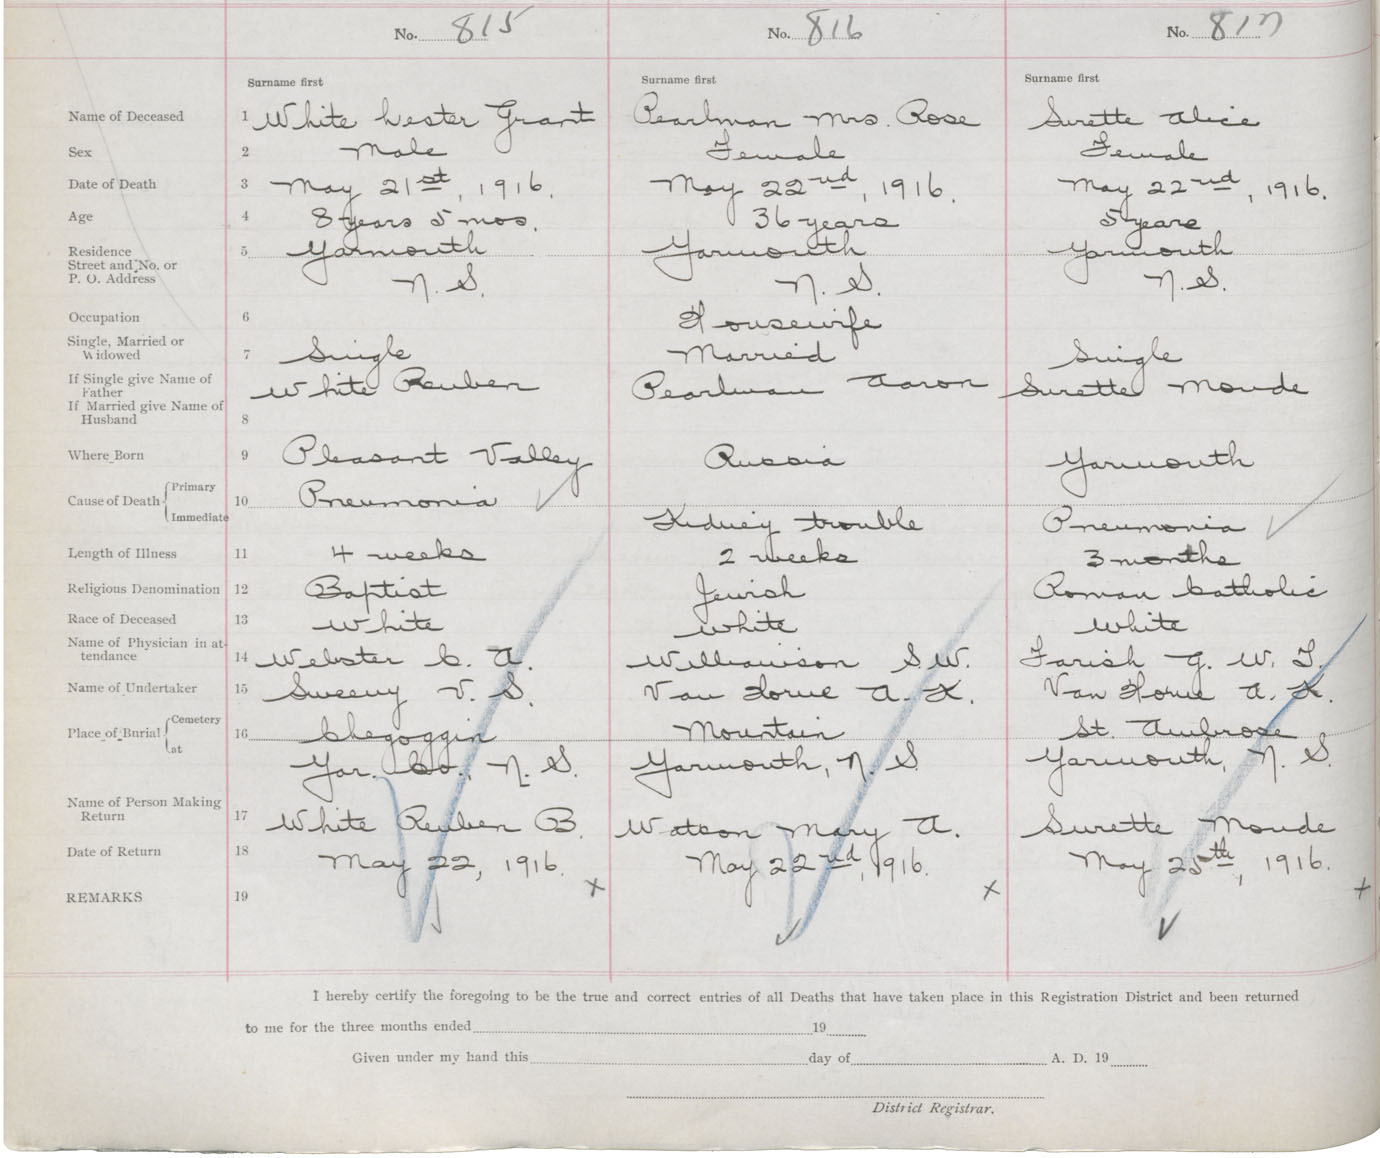 No. 815 No. 816 No. 817
Surname first Surname first Surname first
Name of Deceased 1 White Lester Grant Pearlman Mrs. Rose Surette Alice
Sex 2 Male Female Female
Date of Death 3 May 21st, 1916. May 22nd, 1916. May 22nd, 1916.
Age 4 8 years 5 mos. 36 years 5 years
Residence 5 Yarmouth Yarmouth Yarmouth
Street and No. or
P. O. Address N. S. N. S. N. S.
Occupation 6 Housewife
Single, Married or
Widowed 7 Single Married Single
If Single give Name of
Father White Reuben Pearlman Aaron Surette Monde
If Married give Name of
Husband 8
Where Born 9 Pleasant Valley Russia Yarmouth
Cause of Death Primary 10 Pneumonia
Immediate Kidney trouble Pneumonia
Length of Illness 11 4 weeks 2 weeks 3 months
Religious Denomination 12 Baptist Jewish Roman Catholic
Race of Deceased 13 White White White
Name of Physician in at-
tendance 14 Webster C. A. Williamson S. W. Farish G. W. T.
Name of Undertaker 15 Sweeny V. S. Van Horne A. K. Van Horne A. K.
Place of Burial Cemetery 16 Chegoggin Mountain St. Ambrose
at Yar. Co., N. S. Yarmouth, N. S. Yarmouth, N. S.
Name of Person Making
Return 17 White Reuben B. Watson Mary A. Surette Monde
Date of Return 18 May 22, 1916. May 22nd, 1916. May 25th, 1916.
REMARKS 19 x x +
I hereby certify the foregoing to be the true and correct entries of all Deaths that have taken place in this Registration District and been returned
to me for the three months ended 19
Given under my hand this day of A. D. 19
District Registrar.